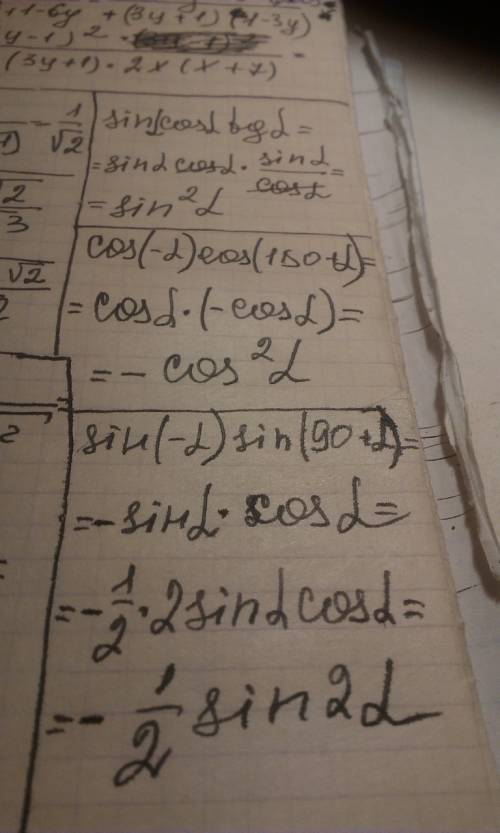 +1-6y + (3y+1)(1-3y)
y-1)²
(3y+1)·2x(x+7)
1) - 1/√2
√2/3
√2/2
sinα cosα tgα =
= sinα cosα · sinα/cosα =
= sin²α
cos(-α)cos(180+α)=
= cosα·(-cosα)=
= - cos²α
sin(-α)sin(90+α)=
= -sinα·cosα=
= -1/2·2sinαcosα=
= - 1/2 sin2α